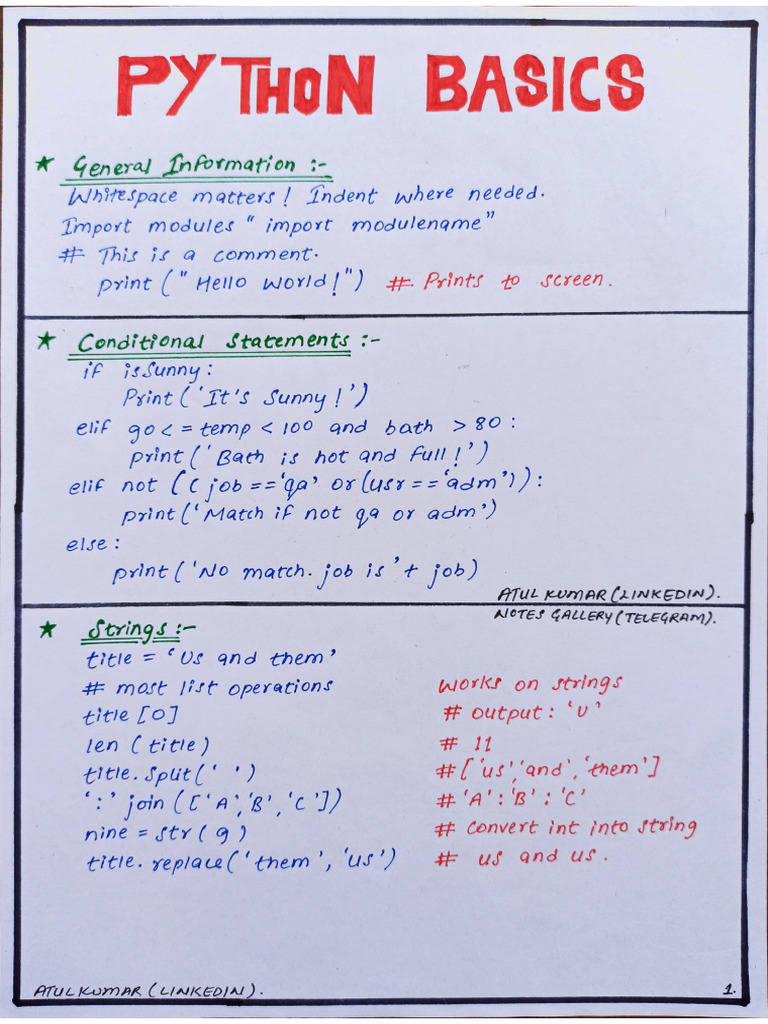 PYTHON BASICS
★ General Information :-
Whitespace matters! Indent where needed.
Import modules " import modulename"
# This is a comment.
print ("Hello World!") # Prints to screen.
★ Conditional Statements :-
if isSunny:
Print ('It's Sunny!')
elif 90 <= temp < 100 and bath > 80 :
print ('Bath is hot and full!')
elif not ((job == 'qa' or (usr == 'adm')) :
print ('Match if not qa or adm')
else :
print ('No match. job is' + job)
ATUL KUMAR (LINKEDIN).
NOTES GALLERY (TELEGRAM).
★ Strings :-
title = 'Us and them'
# most list operations works on strings
title [0] # output : 'U'
len (title) # 11
title. split (' ') # ['us','and','them']
':' join (['A','B','C']) # 'A' : 'B' : 'C'
nine = str (9) # convert int into string
title. replace ('them', 'us') # us and us .
ATUL KUMAR (LINKEDIN).
1.